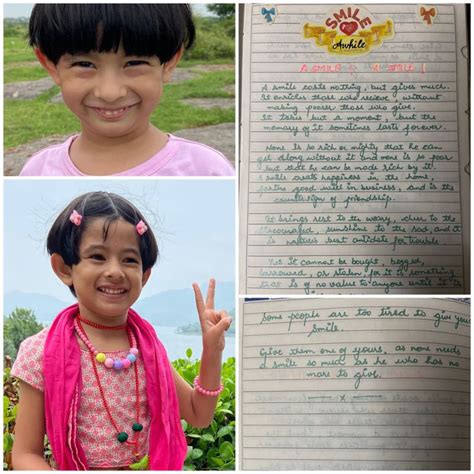 SMILE
Awhile
A SMILE : A SMILE !
A smile costs nothing, but gives much.
It enriches those who recieve, without
making poorer those who give.
It takes but a moment, but the
memory of it sometimes lasts forever.
None is so rich or mighty that he can
get along without it and none is so poor
but that he can be made rich by it.
A smile creats happiness in the home,
fosters good will in business, and is the
countersign of friendship.
It brings rest to the weary, cheer to the
discouraged, sunshine to the sad, and it
is nature's best antidote for trouble
Yet it cannot be bought, begged,
borrowed, or stolen for it is something
that is of no value to anyone until it is
Some people are too tired to give you a
smile.
Give them one of yours, as none needs
a smile so much as he who has no
more to give.
x